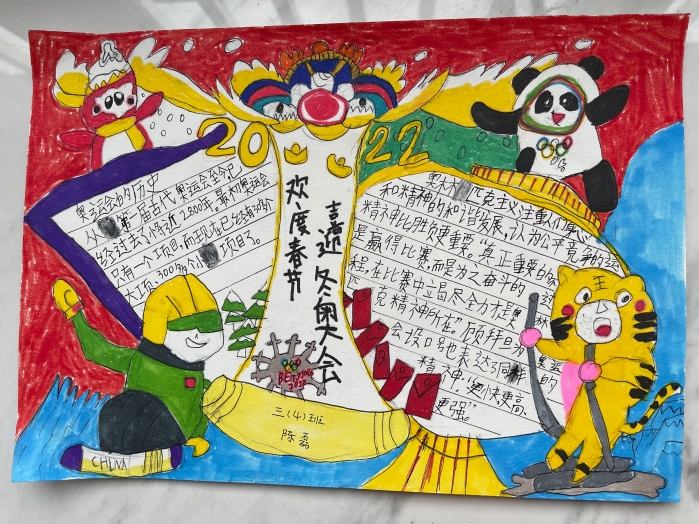 2022
欢度春节
喜迎冬奥会
奥运会的历史
从第一届古代奥运会至今已
经过去了将近2800年。最初奥运会
只有一个项目,而现在已经有30個
大项,300多个项目了。
奥林匹克主义注重人们身心
和精神的和谐发展,认为公平竞争的运
精神比胜负更重要。“真正重要的
是赢得比赛,而是为之奋斗的过
程,在比赛中竭尽全力才是奥林
匹克精神所在”顾拜旦
会设口地表达同样的
精神:“更快更高
更强”。
三(4)班
陈磊
CHINA
王